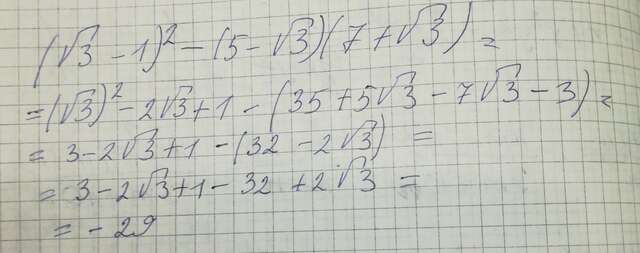 (√3 - 1)² - (5 - √3)(7 + √3) =
= (√3)² - 2√3 + 1 - (35 + 5√3 - 7√3 - 3) =
= 3 - 2√3 + 1 - (32 - 2√3) =
= 3 - 2√3 + 1 - 32 + 2√3 =
= - 29